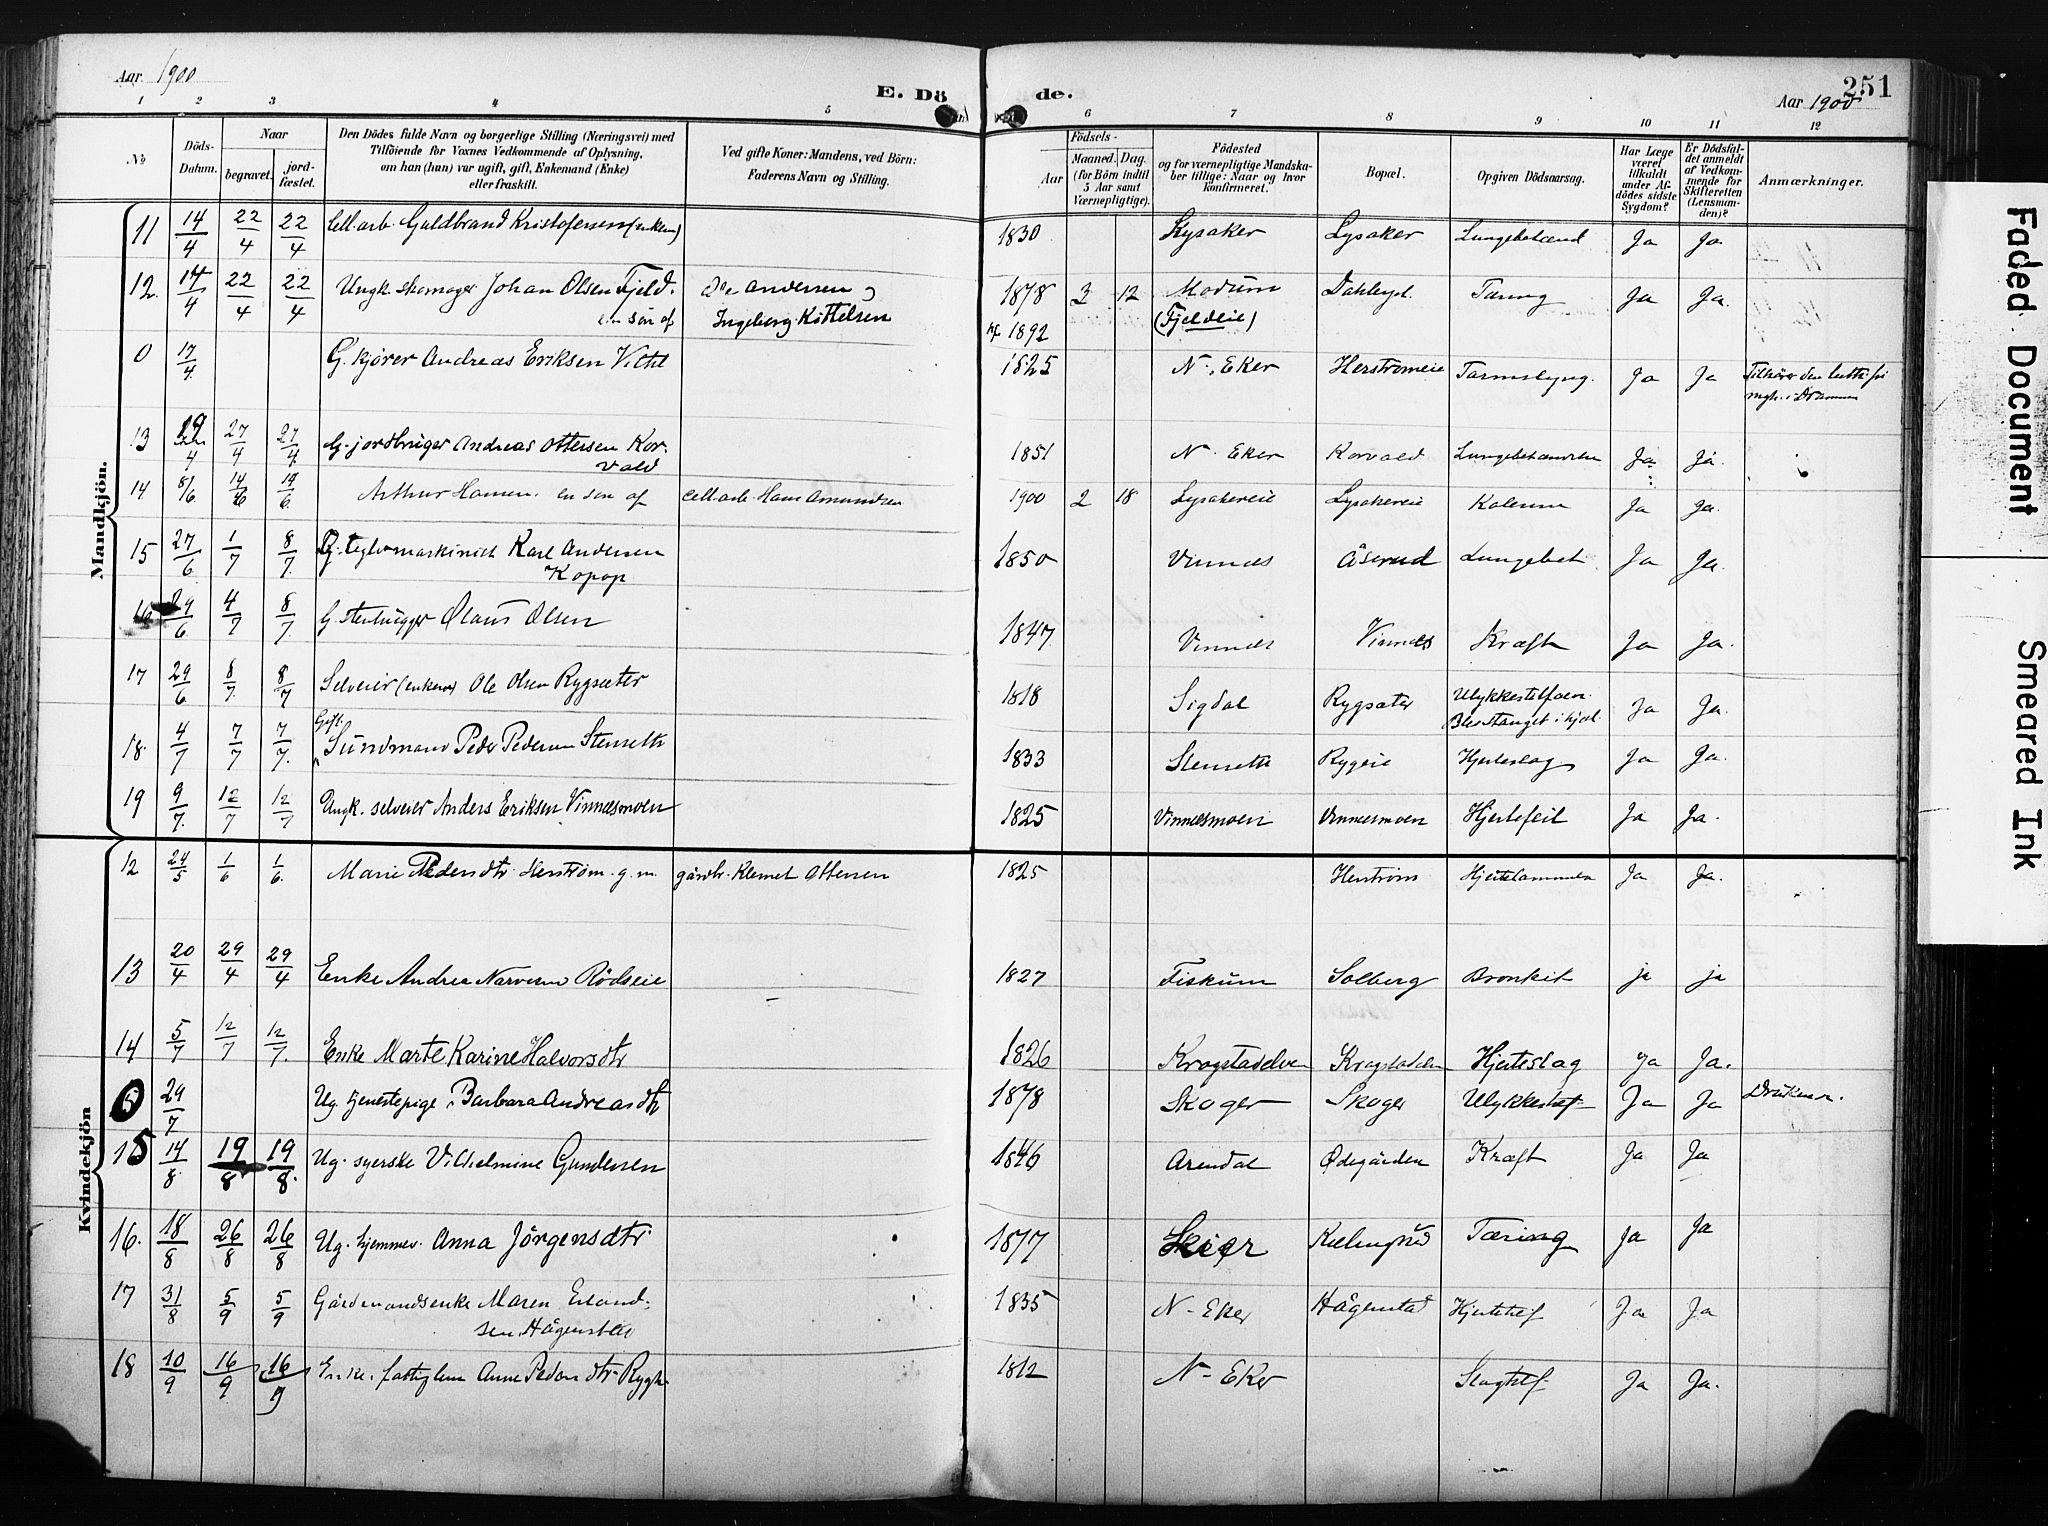 Aar 1900
E. Dö de.
251
Aar 1900
1 2 3 4 5 6 7 8 9 10 11 12
No
Döds-Datum.
Naar begravet. jordfæstet.
Den Dödes fulde Navn og borgerlige Stilling (Næringsvei) med Tilföiende for Voxnes Vedkommende af Oplysning, om han (hun) var ugift, gift, Enkemand (Enke) eller fraskilt.
Ved gifte Koner: Mandens, ved Börn: Faderens Navn og Stilling.
Födsels-
Aar Maaned. Dag. (for Börn indtil 5 Aar samt Værnepligtige).
Födested og for værnepligtige Mandskaber tillige: Naar og hvor konfirmeret.
Bopæl.
Opgiven Dödsaarsag.
Har Læge været tilkaldt under Afdödes sidste Sygdom?
Er Dödsfaldet anmeldt af Vedkommende for Skifteretten (Lensmanden)?
Anmærkninger.
Mandkjön.
11 14/4 22/4 22/4 Cell.arb. Guldbrand Kristofersen (enkem) 1830 Lysaker Lysaker Lungebetænd Ja Ja
12 14/4 22/4 22/4 Ungk. skomager Johan Olsen Fjeld. Ole Andersen og 1878 3 12 Modum Tæring Ja Ja.
en sön af Ingeborg Kittelsen kf. 1892 (Fjeldeie)
0 17/4 G. kjörer Andreas Eriksen 1825 N. Eker Herströmeie Tarmslyng. Ja Ja Tilhörer den luth. fri
mgh. i Drammen
13 19/4 27/4 27/4 G. jordbruger Andreas Ottersen Kor- 1851 N. Eker Korvald Lungebetændelse Ja Ja
vald
14 8/6 14/6 19/6 Arthur Hansen. en sön af cell.arb. Hans Amundsen 1900 2 18 Lysakereie Lysakereie Kolerine Ja Ja.
15 27/6 1/7 8/7 G. teglv.maskinist Karl Andersen 1850 Vinnes Åserud Lungebet Ja Ja.
Kopop
16 29/6 4/7 8/7 G. stenhugger Olaus Olsen 1847 Vinnes Vinnes Kræft Ja Ja.
17 29/6 8/7 8/7 Selveier (enkem) Ole Olsen Rygsæter 1818 Sigdal Rygsæter Ulykkestilfæl.
Blev stanget ihjel. Ja Ja.
18. 4/7 7/7 7/7. Gift. Sundmand Peder Pedersen Stenseth 1833 Stenseth Rygeie Hjerteslag Ja Ja.
19 9/7. 12/7 12/7 Ungk. selveier Anders Eriksen Vinnesmoen 1825 Vinnesmoen Vinnesmoen Hjertefeil Ja Ja.
Kvindekjön
12 24/5 1/6 1/6. Marie Pedersdtr Herström. g. m. gårdbr. Klemet Ottersen 1825 Herström Hjertelammelse Ja Ja.
13 20/4 29/4 29/4 Enke Andrea Narvesen Rödseie 1827 Fiskum Solberg Bronkit ja ja
14 5/7 12/7 12/7. Enke Marte Karine Halvorsdtr 1826 Krogstadelven Krogstadelven Hjerteslag Ja Ja.
0 29/7 Ug. tjenestepige Barbara Andreasdtr 1878 Skoger Skoger Ulykkestilf. Ja Ja
15 14/8. 19/8 19/8. Ug. syerske Vilhelmine Gundersen 1846 Arendal Ödegården Kræft Ja Ja
16. 18/8 26/8 26/8 Ug. hjemmev. Anna Jörgensdtr 1877 Skier Tæring Ja Ja
17 31/8 5/9 5/9 Gårdmandsenke Maren Erland- 1835 N. Eker Hågenstad Hjertetilf Ja Ja
sen Hågenstad
18 10/9 16/9 16/9 Enke. fattiglem Anne Pedersdtr Rygh 1812 N. Eker Slagtilf. Ja Ja.
Faded Document
Smeared Ink